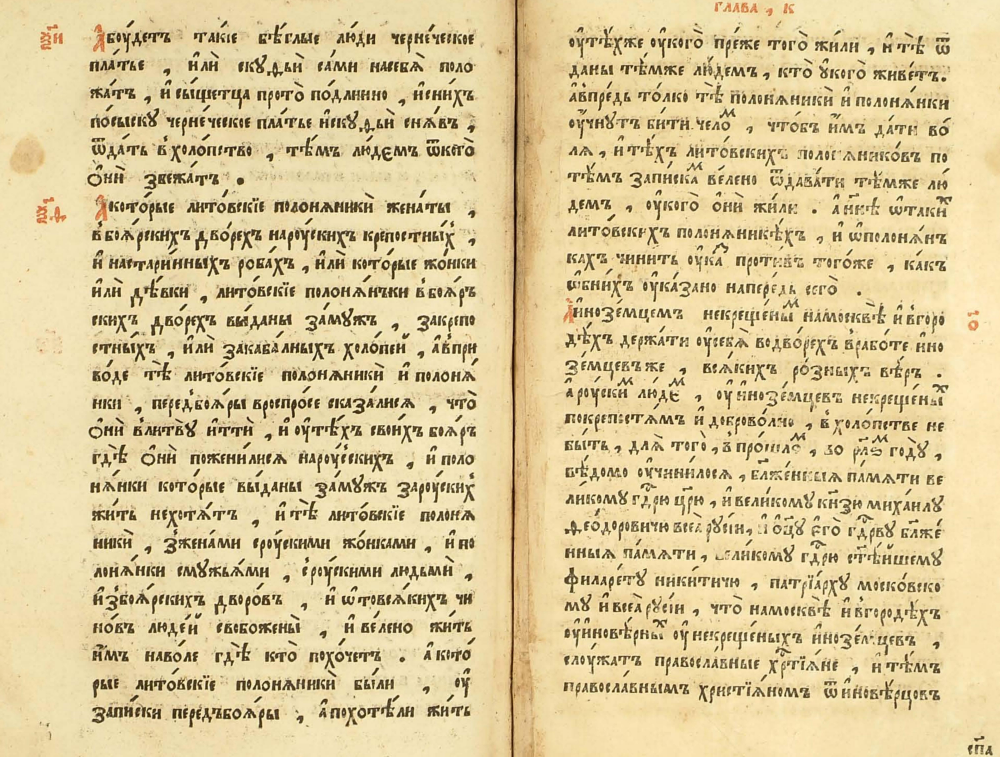 А боу́детъ такі́е бѣ́глые лю́ди черне́ческое
пла́тье , и҆лѝ скуѳьѝ са́ми насебѧ̀ поло
жа́тъ , и҆ сы́щетца прото̀ по́длинно , и҆ снихъ
посы́ску черне́ческое пла́тье и҆ скуѳьѝ снѧ́въ ,
ѿда́ть в холо́пство , тѣ́мъ лю́демъ ѿкого̀
ѻ҆нѝ збежа́тъ .
А кото́рые лито́вскїе полонѧ́ники жена́ты ,
в боѧ́рскихъ дворе́хъ нароу́скихъ крепостны́х ,
и҆ настари́нныхъ ро́бахъ , и҆лѝ кото́рые жо́нки
и҆лѝ дѣ́вки , лито́вскїе полонѧ́нъки в боѧ́р
скихъ дворе́хъ вы́даны за́мужъ , закрепо
стны́хъ , и҆лѝ закаба́лныхъ холо́пей , а҆ в при
во́де тѣ̀ лито́вскїе полонѧ́ники и҆ полонѧ́
нки , пере́д боѧ́ры в роспро́се сказа́лисѧ , что̀
ѻ҆нѝ в литвꙋ̀ и҆ттѝ , и҆ оу҆тѣ́хъ свои́хъ боѧ́ръ
гдѣ̀ ѻ҆нѝ пожени́лисѧ нароу́сскихъ , и҆ поло
нѧ́нки кото́рые вы́даны за́мужъ зароу́скихъ
жить нехотѧ́тъ , и҆ тѣ̀ лито́вскїе полонѧ́
ники , зженами сроу́скими жо́нками , и҆ по
лонѧ́нки смужьѧ́ми , сроу́скими людьмѝ ,
и҆ збоѧ́рскихъ дворо́въ , и҆ ѿ всѧ́кихъ чи
но́въ люде́й свобоженѝ , и҆ ве́лено жить
и҆́мъ наво́ле гдѣ̀ кто̀ похо́четъ . а҆ кото́
рые лито́вскїе полонѧ́ники бы́ли , оу҆
запи́ски передъбоѧ́ры , а҆ похотѣ́ли жить
ГЛАВА , К
оу҆тѣ́хже оу҆кого̀ пре́же того̀ жи́ли , и҆ тѣ̀ ѿ
даны тѣ́мже лю́демъ , кто̀ оу҆кого̀ живе́тъ .
а҆ впре́дь то́лко тѣ̀ полонѧ́ники и҆ полонѧ́нки
оу҆чнꙋ́тъ би́ти чело́м , что́бъ и҆́мъ да́ти во́
лѧ , и҆ тѣ́хъ лито́вскихъ полонѧ́никовъ по
тѣ́мъ запи́скам ве́лено ѿдава́ти тѣ́мже лю́
демъ , оу҆кого̀ ѻ҆нѝ жи́ли . а҆ н҃нѣ ѡ҆ таки́х
лито́вскихъ полонѧ́никѣхъ , и҆ ѡ҆ полонѧ́н
кахъ чини́ть оу҆ка́з про́тивъ тогоже , ка́къ
ѡ҆бни́хъ оу҆ка́зано напере́дь сего̀ .
А и҆ноземцемъ некреще́ным намосквѣ̀ и҆ вгоро
дѣ́хъ держа́ти оу҆себѧ̀ водворе́хъ врабо́те и҆но
зе́мцевъже , всѧ́кихъ ро́зныхъ вѣ́ръ .
а҆ роу́ским лю́дем , оу҆ и҆нозе́мцевъ некреще́ных
покре́постѧмъ и҆ доброво́лно , в холо́пстве не
бы́ть , длѧ̀ того̀ , в про́шлом , во р҃лѕм годꙋ̀ ,
вѣ́домо оу҆чини́лосѧ , бл҃же́нныѧ па́мѧти ве
ли́комꙋ гд҃рю цр҃ю , и҆ вели́комꙋ кн҃зю михаи́лꙋ
ѳео́доровичю всеѧ̀ рꙋсі́и , и҆ ѻ҆ц҃ꙋ е҆гѡ̀ гд҃рвꙋ бл҃же́
нныѧ па́мѧти , вели́комꙋ гд҃рю ст҃ѣ́йшемꙋ
филаре́тꙋ ники́тичю , патрїа́рхꙋ моско́вско
мꙋ и҆ всеѧ̀ рꙋсі́и , что̀ намосквѣ̀ и҆ вгородѣ́хъ
оу҆ и҆новѣ́рных оу҆ некреще́ныхъ и҆нозе́мцевъ ,
слоу́жатъ правосла́вные хр҃тїѧ́не , и҆ тѣ́мъ
правосла́внымъ христїѧ́номъ ѿ и҆новѣ́рцовъ
сп҃а